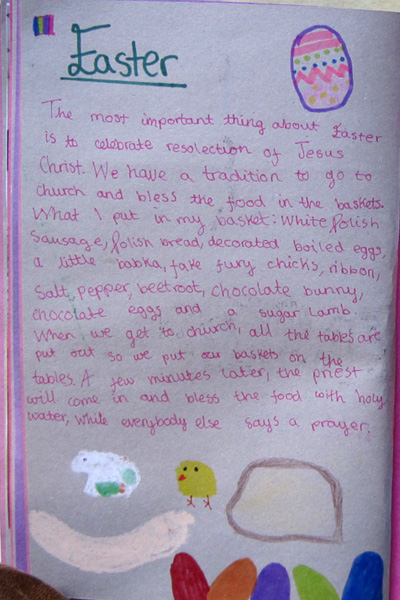 Easter
The most important thing about Easter
is to celebrate resolection of Jesus
Christ. We have a tradition to go to
church and bless the food in the baskets.
What I put in my basket: White polish
sausage, polish bread, decorated boiled eggs,
a little babka, fake fury chicks, ribbon,
salt, pepper, beetroot, chocolate bunny,
chocolate eggs and a sugar lamb.
When we get to church, all the tables are
put out so we put our baskets on the
tables. A few minutes later, the priest
will come in and bless the food with holy
water, while everybody else says a prayer.